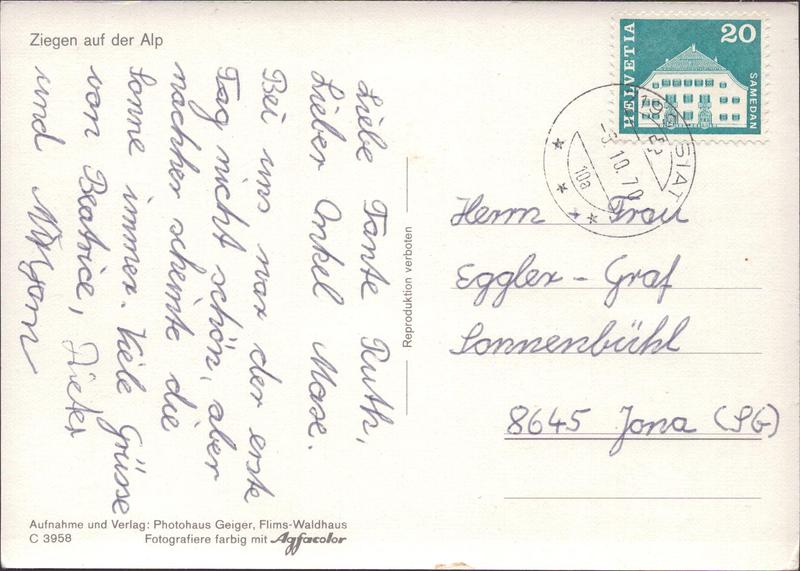 Ziegen auf der Alp
Liebe Tante Ruth,
Lieber Onkel Max.
Bei uns war der erste
Tag nicht schön, aber
nachher scheinte die
Sonne immer. Viele Grüsse
von Beatrice, Dieter
und
Reproduktion verboten
HELVETIA
20
SAMEDAN
SIAT
-9.10.70
10a
Herrn + Frau
Eggler - Graf
Sonnenbühl
8645 Jona (SG)
Aufnahme und Verlag: Photohaus Geiger, Flims-Waldhaus
C 3958 Fotografiere farbig mit Agfacolor